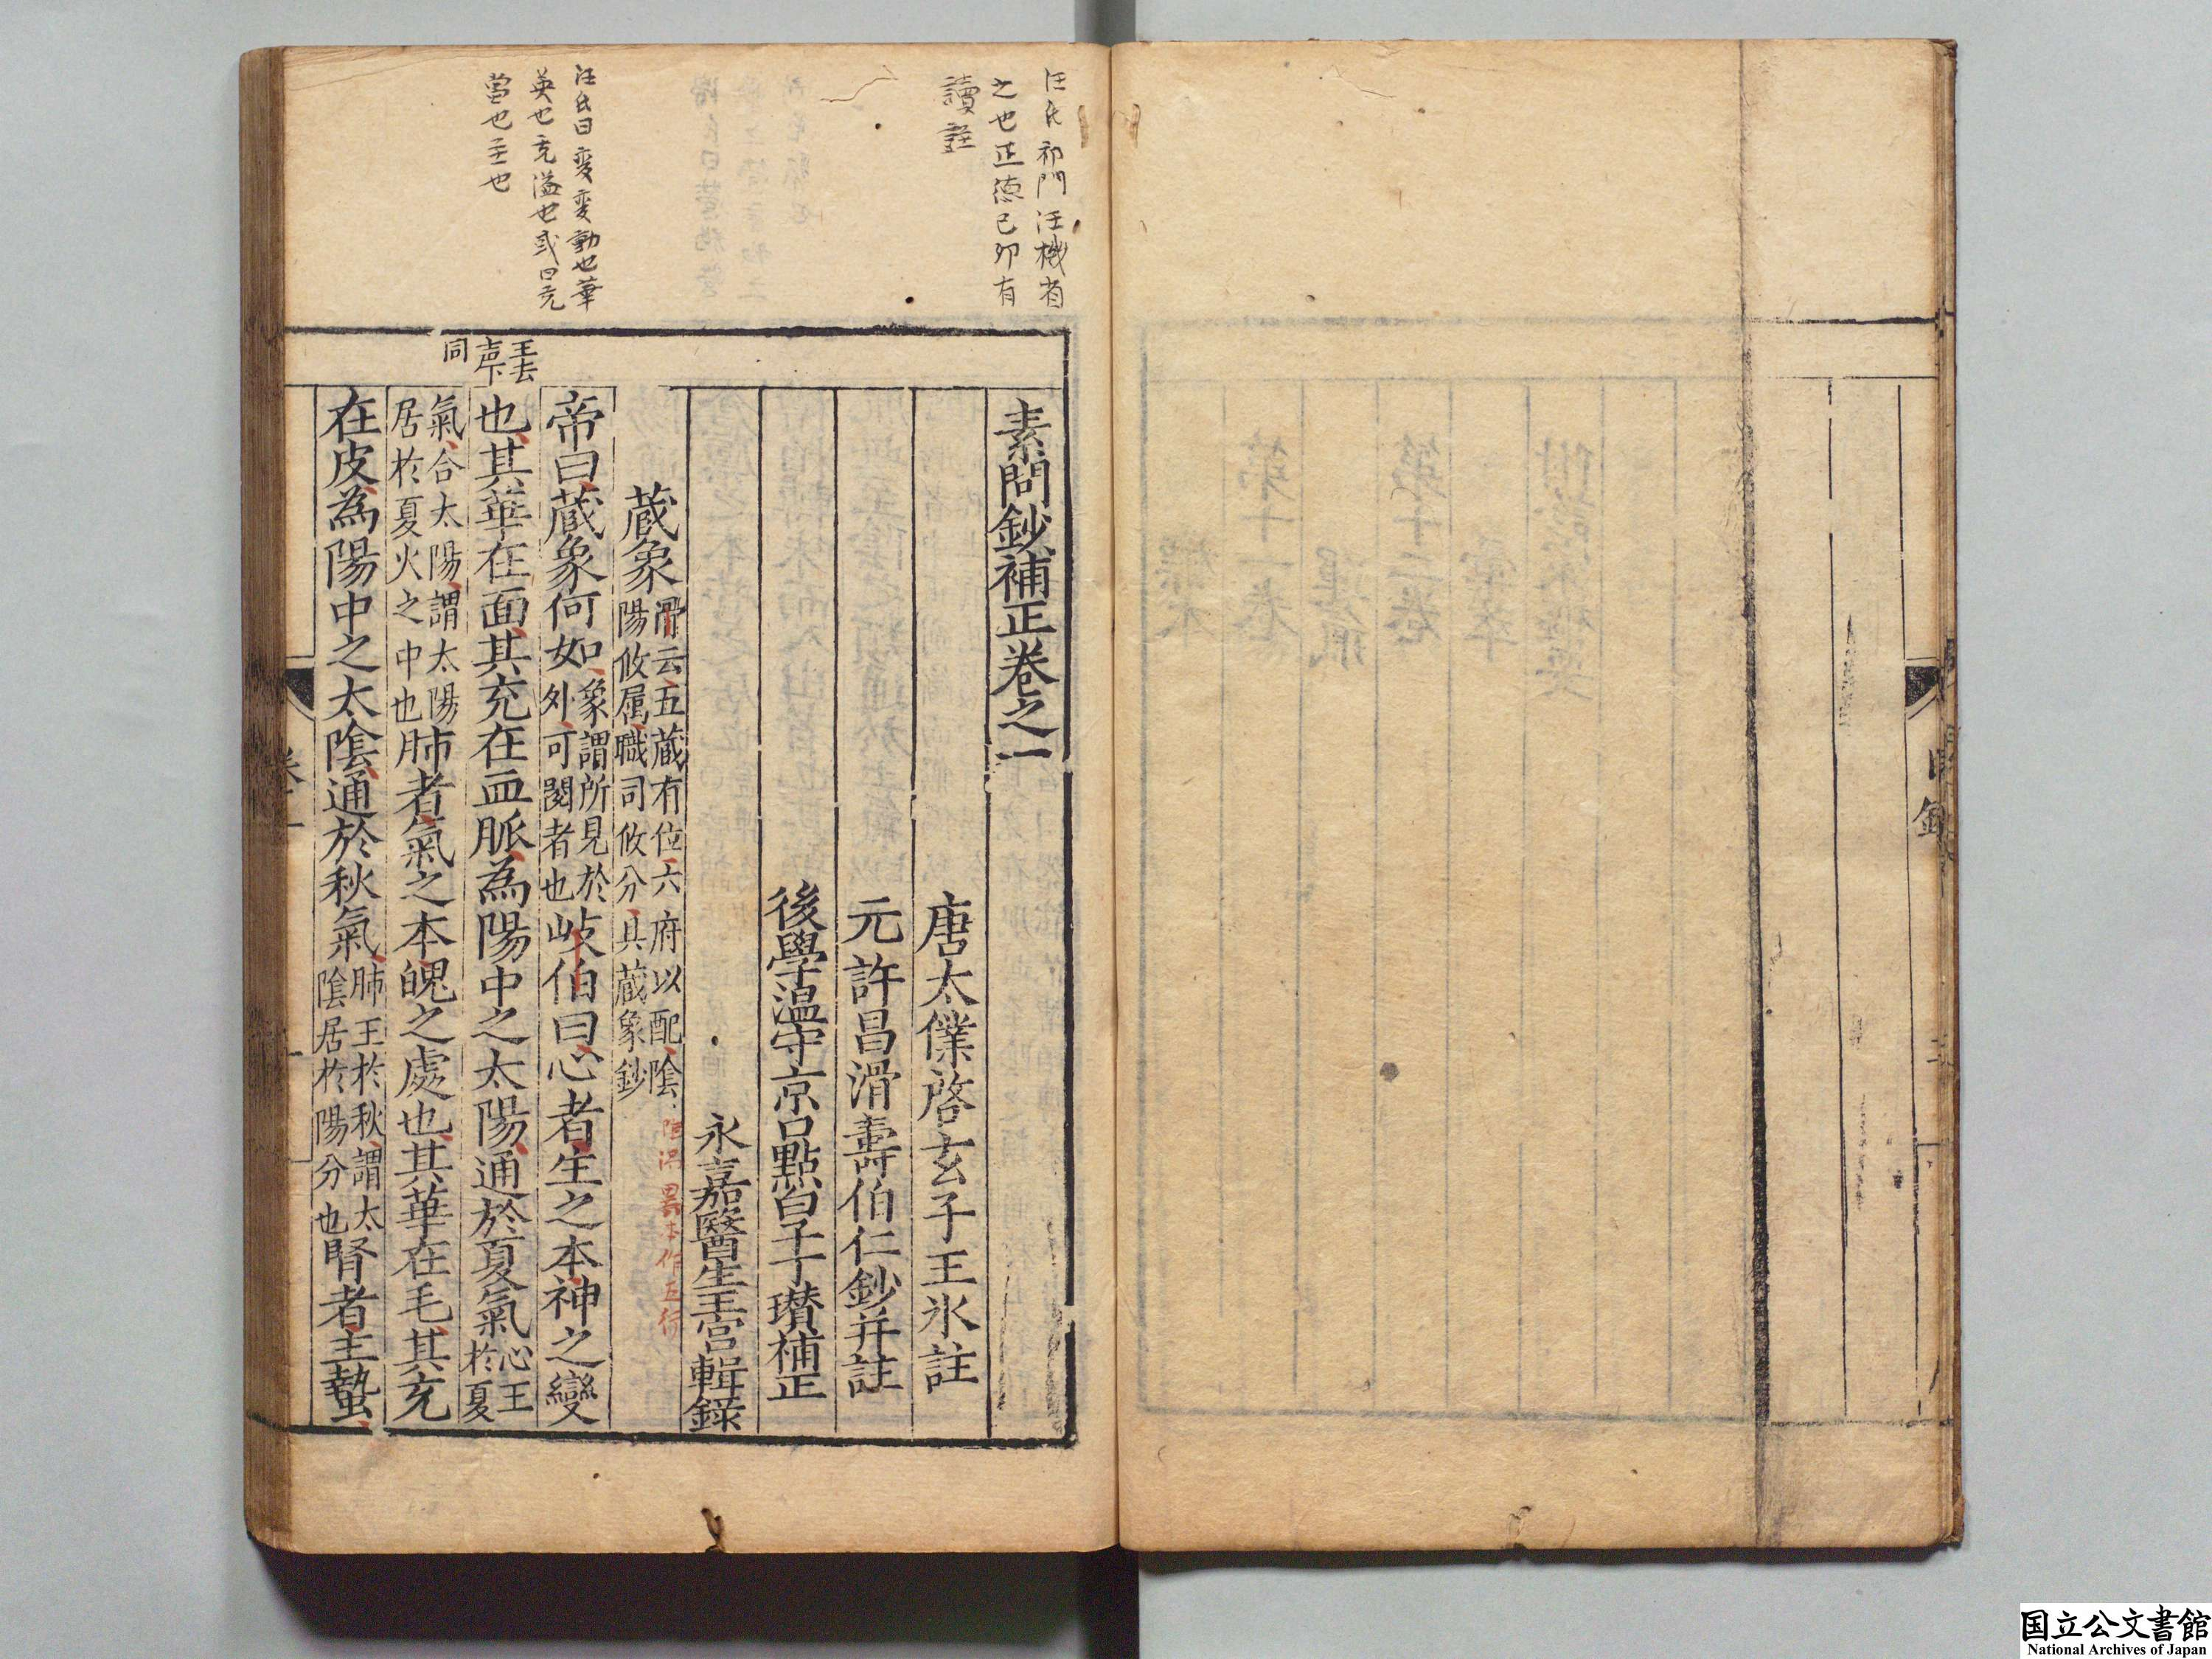 目錄
汪氏祁門汪機省
之也正德己卯有
讀註
汪氏曰変変動也華
英也充溢也或曰充
當也主也
王去
声下
同
素問鈔補正卷之一
唐太僕啓玄子王氷註
元許昌滑壽伯仁鈔并註
後學温守京口點白子丁瓚補正
永嘉醫生王宫輯錄
蔵象滑云五蔵有位六府以配陰
陽攸属職司攸分具蔵象鈔
帝曰蔵象何如象謂所見於
外可閱者也岐伯曰心者生之本神之變
也其華在面其充在血脈為陽中之太陽通於夏氣心王
於夏
氣合太陽謂太陽
居於夏火之中也肺者氣之本魄之處也其華在毛其充
在皮為陽中之太陰通於秋氣肺王於秋謂太
陰居於陽分也腎者主蟄
卷一
国立公文書館
National Archives of Japan